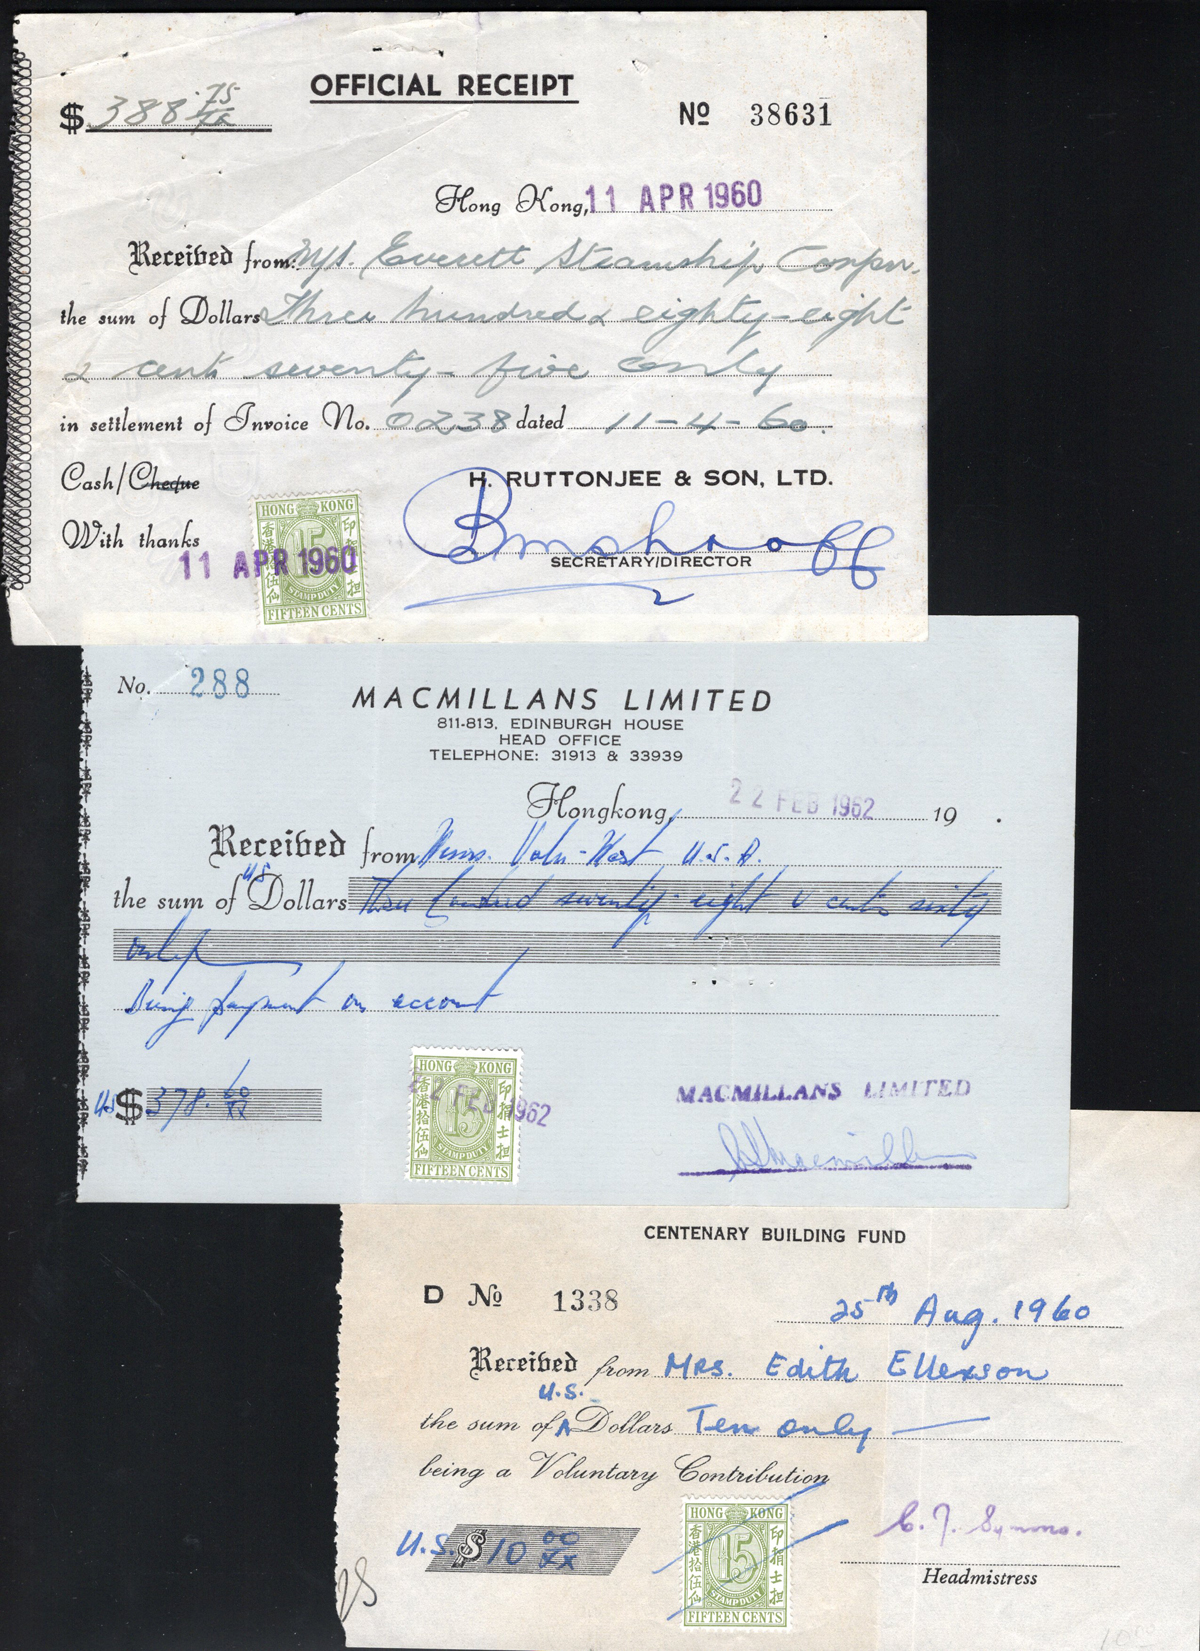 OFFICIAL RECEIPT
$ 388.75/xx
No 38631
Hong Kong, 11 APR 1960
Received from: M/s. Everett Steamship Corpn.
the sum of Dollars Three hundred & eighty-eight
& cents seventy-five only
in settlement of Invoice No. 0238 dated 11-4-60.
Cash/Cheque
H. RUTTONJEE & SON, LTD.
With thanks
11 APR 1960
SECRETARY/DIRECTOR
HONG KONG
香港拾伍仙
印捐士担
15
STAMP DUTY
FIFTEEN CENTS
No. 288
MACMILLANS LIMITED
811-813, EDINBURGH HOUSE
HEAD OFFICE
TELEPHONE: 31913 & 33939
Hongkong, 22 FEB 1962 19 .
Received from Messrs. U.S.A.
the sum of US Dollars Three hundred seventy-eight & cents sixty
only
Being payment on account
US $ 378.60/xx
HONG KONG
香港拾伍仙
印捐士担
15
STAMP DUTY
FIFTEEN CENTS
22 FEB 1962
MACMILLANS LIMITED
CENTENARY BUILDING FUND
D No 1338
25th Aug. 1960
Received from Mrs. Edith Ellexson
U.S.
the sum of Dollars Ten only
being a Voluntary Contribution
U.S. $ 10 00/xx
HONG KONG
香港拾伍仙
印捐士担
15
STAMP DUTY
FIFTEEN CENTS
C. J. Symons.
Headmistress